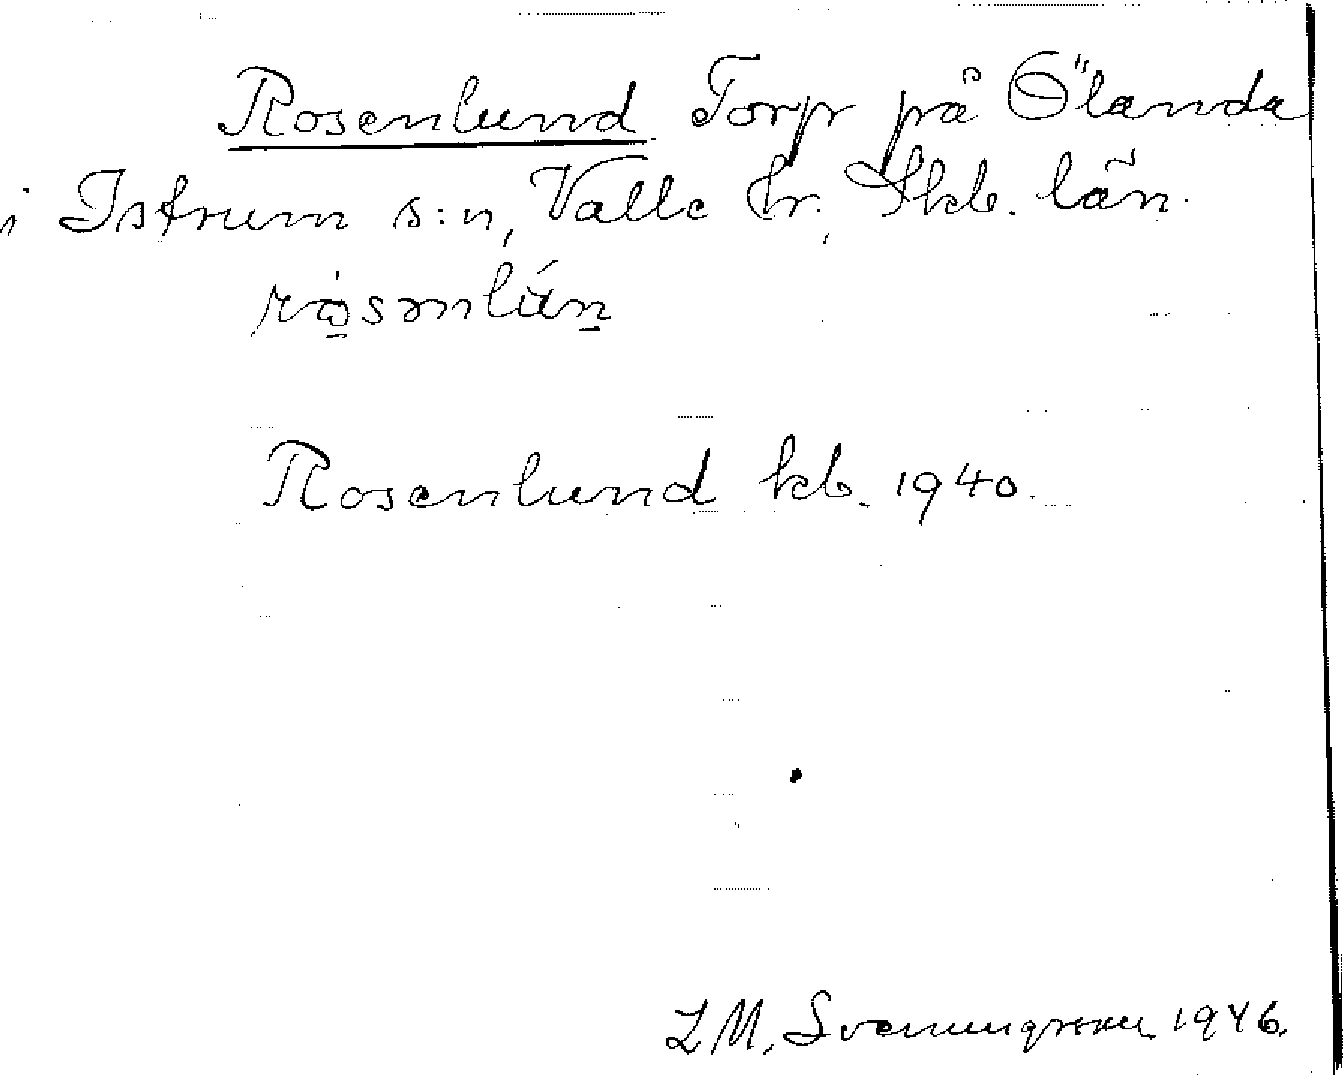 Rosenlund Torp på Ölanda
i Istrum s:n, Valle hr. Skb. län.
Rosenlund kb. 1940.
Z M, Svenungsson 1946.